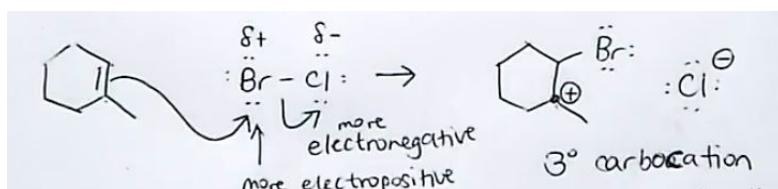 δ+ δ-
:Br-Cl: → Br: :Cl: ⊖
⊕
more
electronegative
more electropositive
3° carbocation